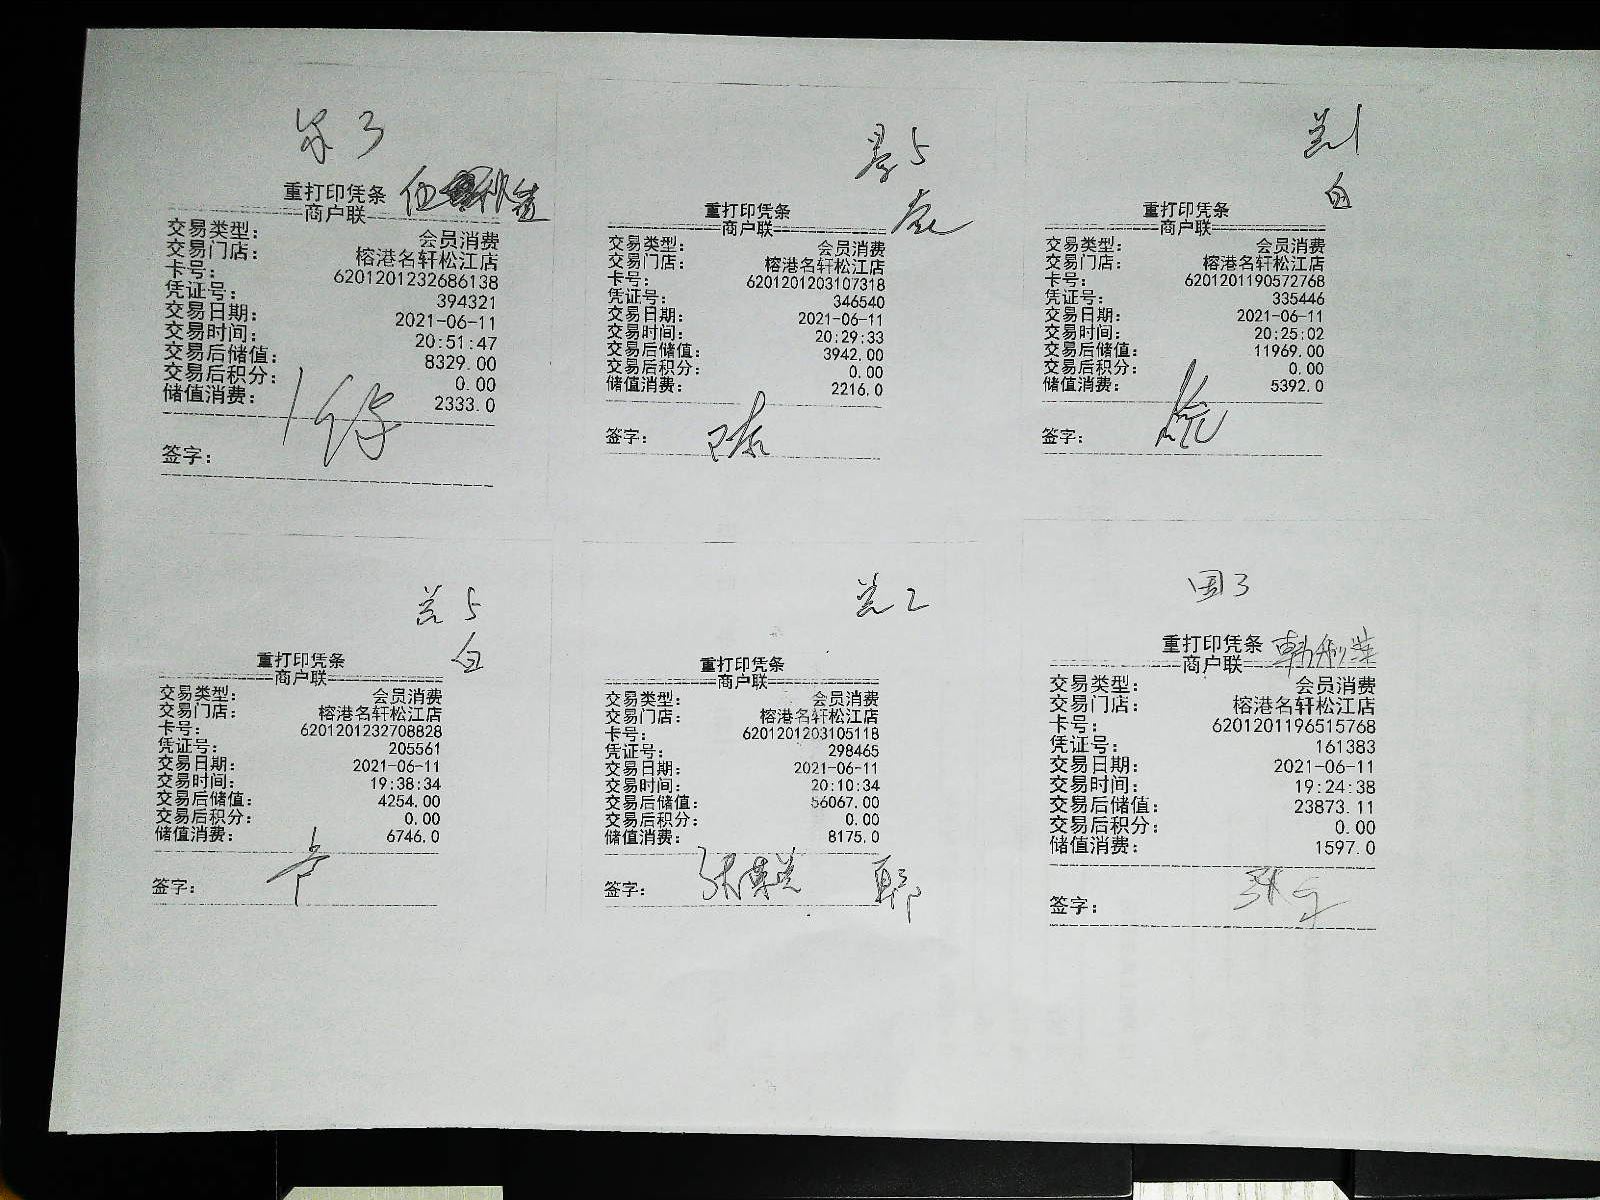 3
重打印凭条
商户联
交易类型: 会员消费
交易门店: 榕港名轩松江店
卡号: 6201201232686138
凭证号: 394321
交易日期: 2021-06-11
交易时间: 20:51:47
交易后储值: 8329.00
交易后积分: 0.00
储值消费: 2333.0
签字:
5
重打印凭条
商户联
交易类型: 会员消费
交易门店: 榕港名轩松江店
卡号: 6201201203107318
凭证号: 346540
交易日期: 2021-06-11
交易时间: 20:29:33
交易后储值: 3942.00
交易后积分: 0.00
储值消费: 2216.0
签字: 陈
兰1
白
重打印凭条
商户联
交易类型: 会员消费
交易门店: 榕港名轩松江店
卡号: 6201201190572768
凭证号: 335446
交易日期: 2021-06-11
交易时间: 20:25:02
交易后储值: 11969.00
交易后积分: 0.00
储值消费: 5392.0
签字:
5
白
重打印凭条
商户联
交易类型: 会员消费
交易门店: 榕港名轩松江店
卡号: 6201201232708828
凭证号: 205561
交易日期: 2021-06-11
交易时间: 19:38:34
交易后储值: 4254.00
交易后积分: 0.00
储值消费: 6746.0
签字:
2
重打印凭条
商户联
交易类型: 会员消费
交易门店: 榕港名轩松江店
卡号: 6201201203105118
凭证号: 298465
交易日期: 2021-06-11
交易时间: 20:10:34
交易后储值: 56067.00
交易后积分: 0.00
储值消费: 8175.0
签字:
3
重打印凭条
商户联
交易类型: 会员消费
交易门店: 榕港名轩松江店
卡号: 6201201196515768
凭证号: 161383
交易日期: 2021-06-11
交易时间: 19:24:38
交易后储值: 23873.11
交易后积分: 0.00
储值消费: 1597.0
签字: